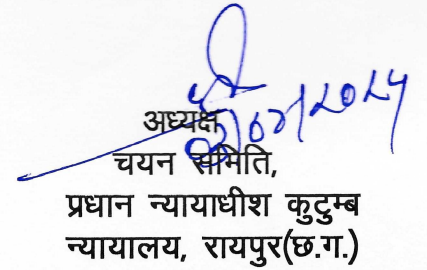 अध्यक्ष
चयन समिति,
प्रधान न्यायाधीश कुटुम्ब
न्यायालय, रायपुर(छ.ग.)